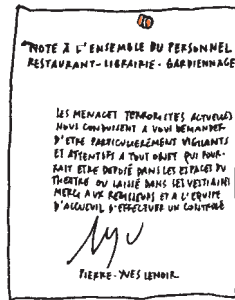 NOTE À L'ENSEMBLE DU PERSONNEL
RESTAURANT-LIBRAIRIE-GARDIENNAGE
LES MENACES TERRORISTES ACTUELLES
NOUS CONDUISENT A VOUS DEMANDER
D'ETRE PARTICULIEREMENT VIGILANTS
ET ATTENTIFS A TOUT OBJET QUI POUR-
RAIT ETRE DEPOSÉ DANS LES ESPACES DU
THEATRE OU LAISSÉ DANS SES VESTIAIRES
MERCI AUX REGISSEURS ET A L'EQUIPE
D'ACCUEUIL D'EFFECTUER UN CONTROLE
PIERRE-YVES LENOIR